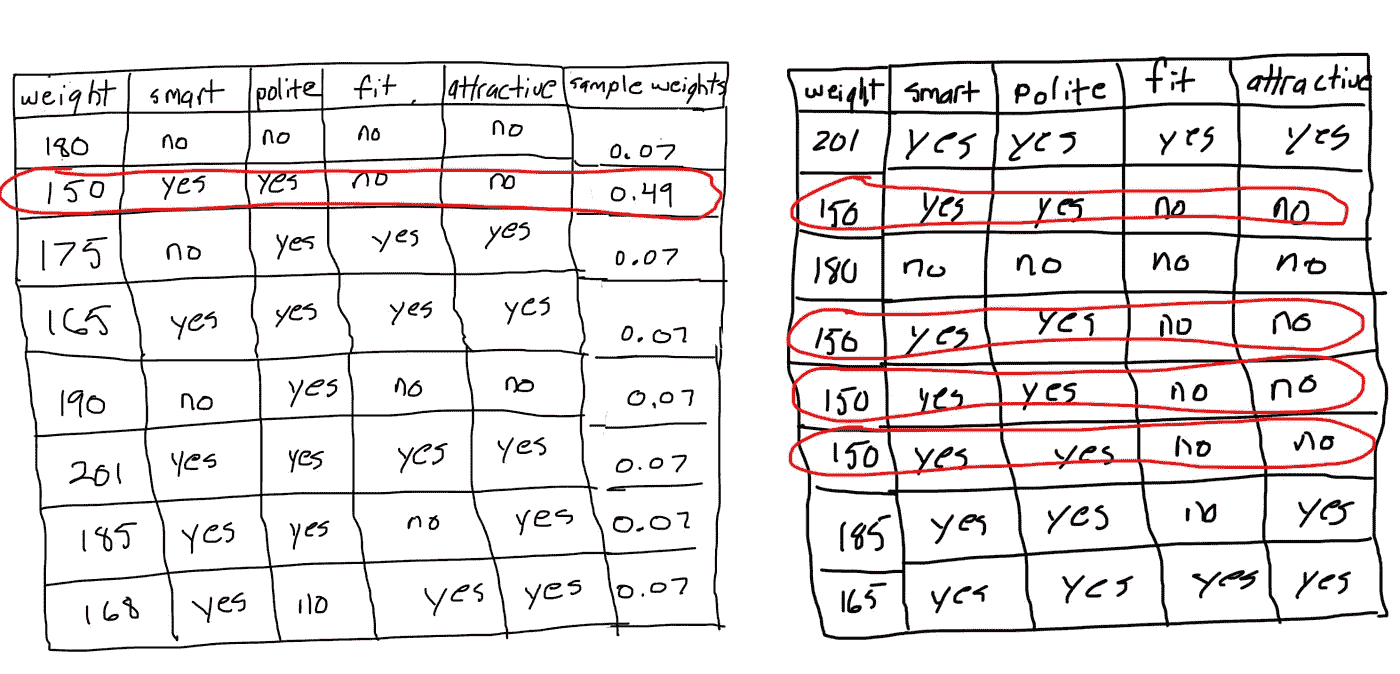 weight smart polite fit attractive sample weights
180 no no no no 0.07
150 yes yes no no 0.49
175 no yes yes yes 0.07
165 yes yes yes yes 0.07
190 no yes no no 0.07
201 yes yes yes yes 0.07
185 yes yes no yes 0.07
168 yes no yes yes 0.07
weight smart polite fit attractive
201 yes yes yes yes
150 yes yes no no
180 no no no no
150 yes yes no no
150 yes yes no no
150 yes yes no no
185 yes yes no yes
165 yes yes yes yes